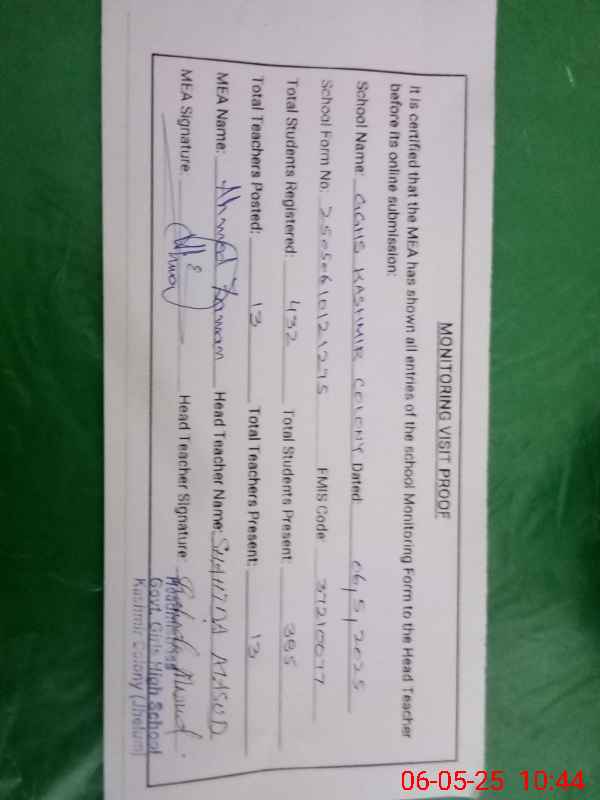 MONITORING VISIT PROOF
It is certified that the MEA has shown all entries of the school Monitoring Form to the Head Teacher
before its online submission:
School Name: GGHS KASHMIR COLONY Dated: 06/5/2025
School Form No: EMIS Code: 37210077
Total Students Registered: 432 Total Students Present: 385
Total Teachers Posted: 13 Total Teachers Present: 13
MEA Name: Ahmed Head Teacher Name: SHAHIDA MASUD
MEA Signature: Head Teacher Signature:
Headmistress
Govt. Girls High School
Kashmir Colony (Jhelum)
06-05-25 10:44